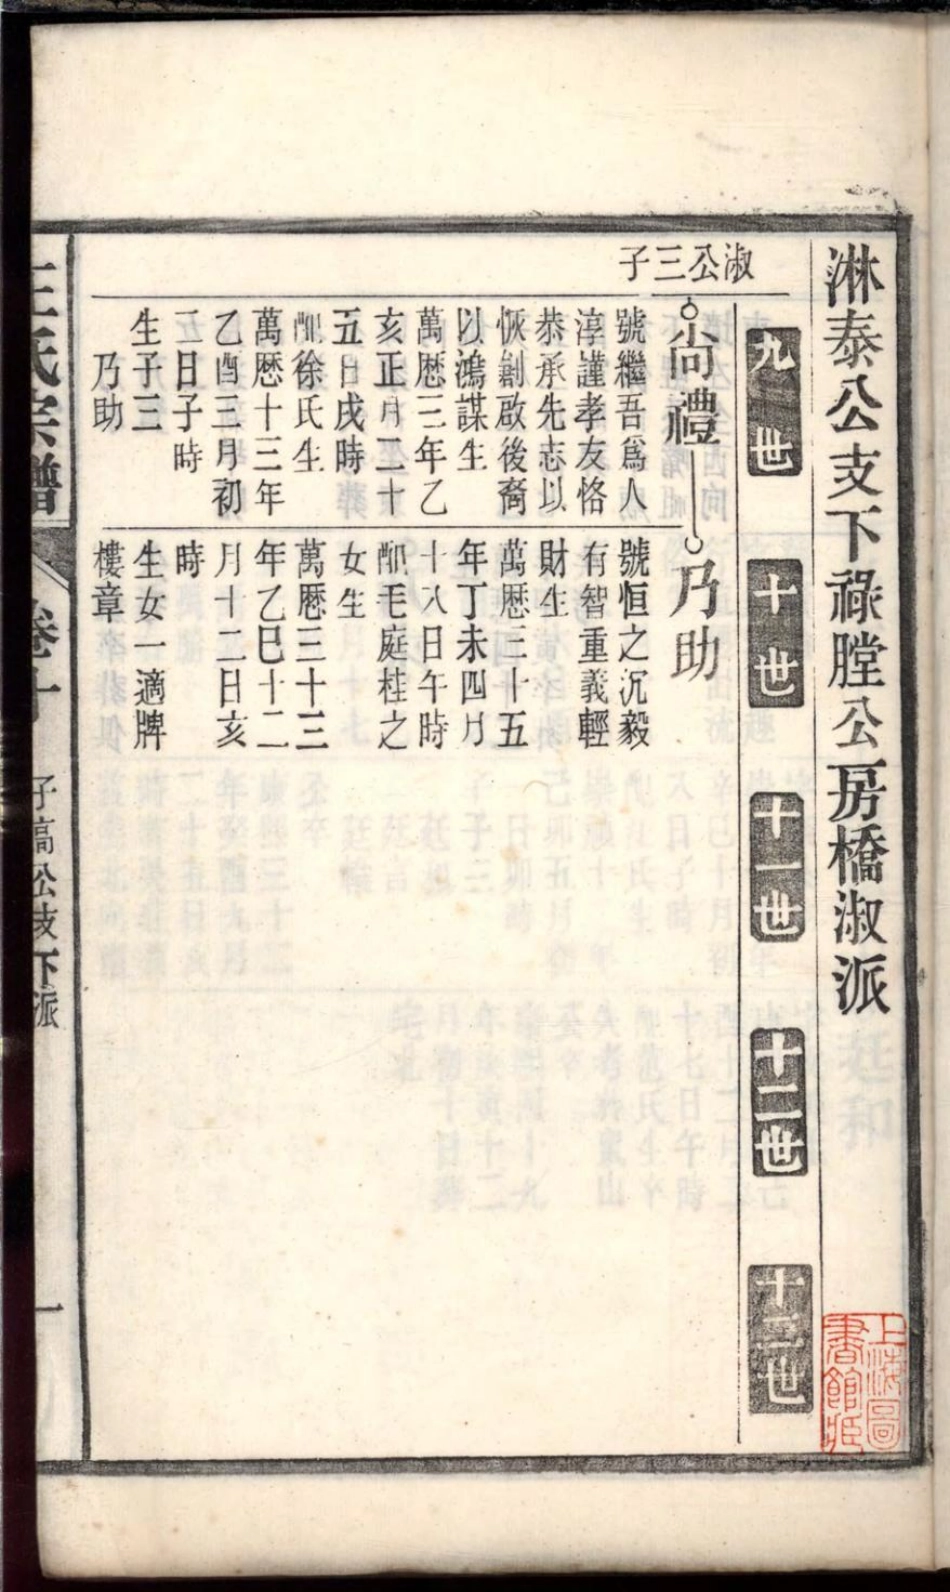 淋泰公支下祿膛公房橋淑派
九世
十世
十一世
十二世
十三世
淑公三子
尚禮
號繼吾爲人
淳謹孝友恪
恭承先志以
恢創啟後裔
以鴻謀生
萬歴三年乙
亥正月二十
五日戌時
配徐氏生
萬歴十三年
乙酉三月初
三日子時
生子三
乃助
乃助
號恒之沉毅
有智重義輕
財生
萬歴三十五
年丁未四月
十八日午時
配毛庭桂之
女生
萬歴三十三
年乙巳十二
月十二日亥
時
生女一適牌
樓章
王氏宗譜
卷十
支下派
一
上海圖
書館藏